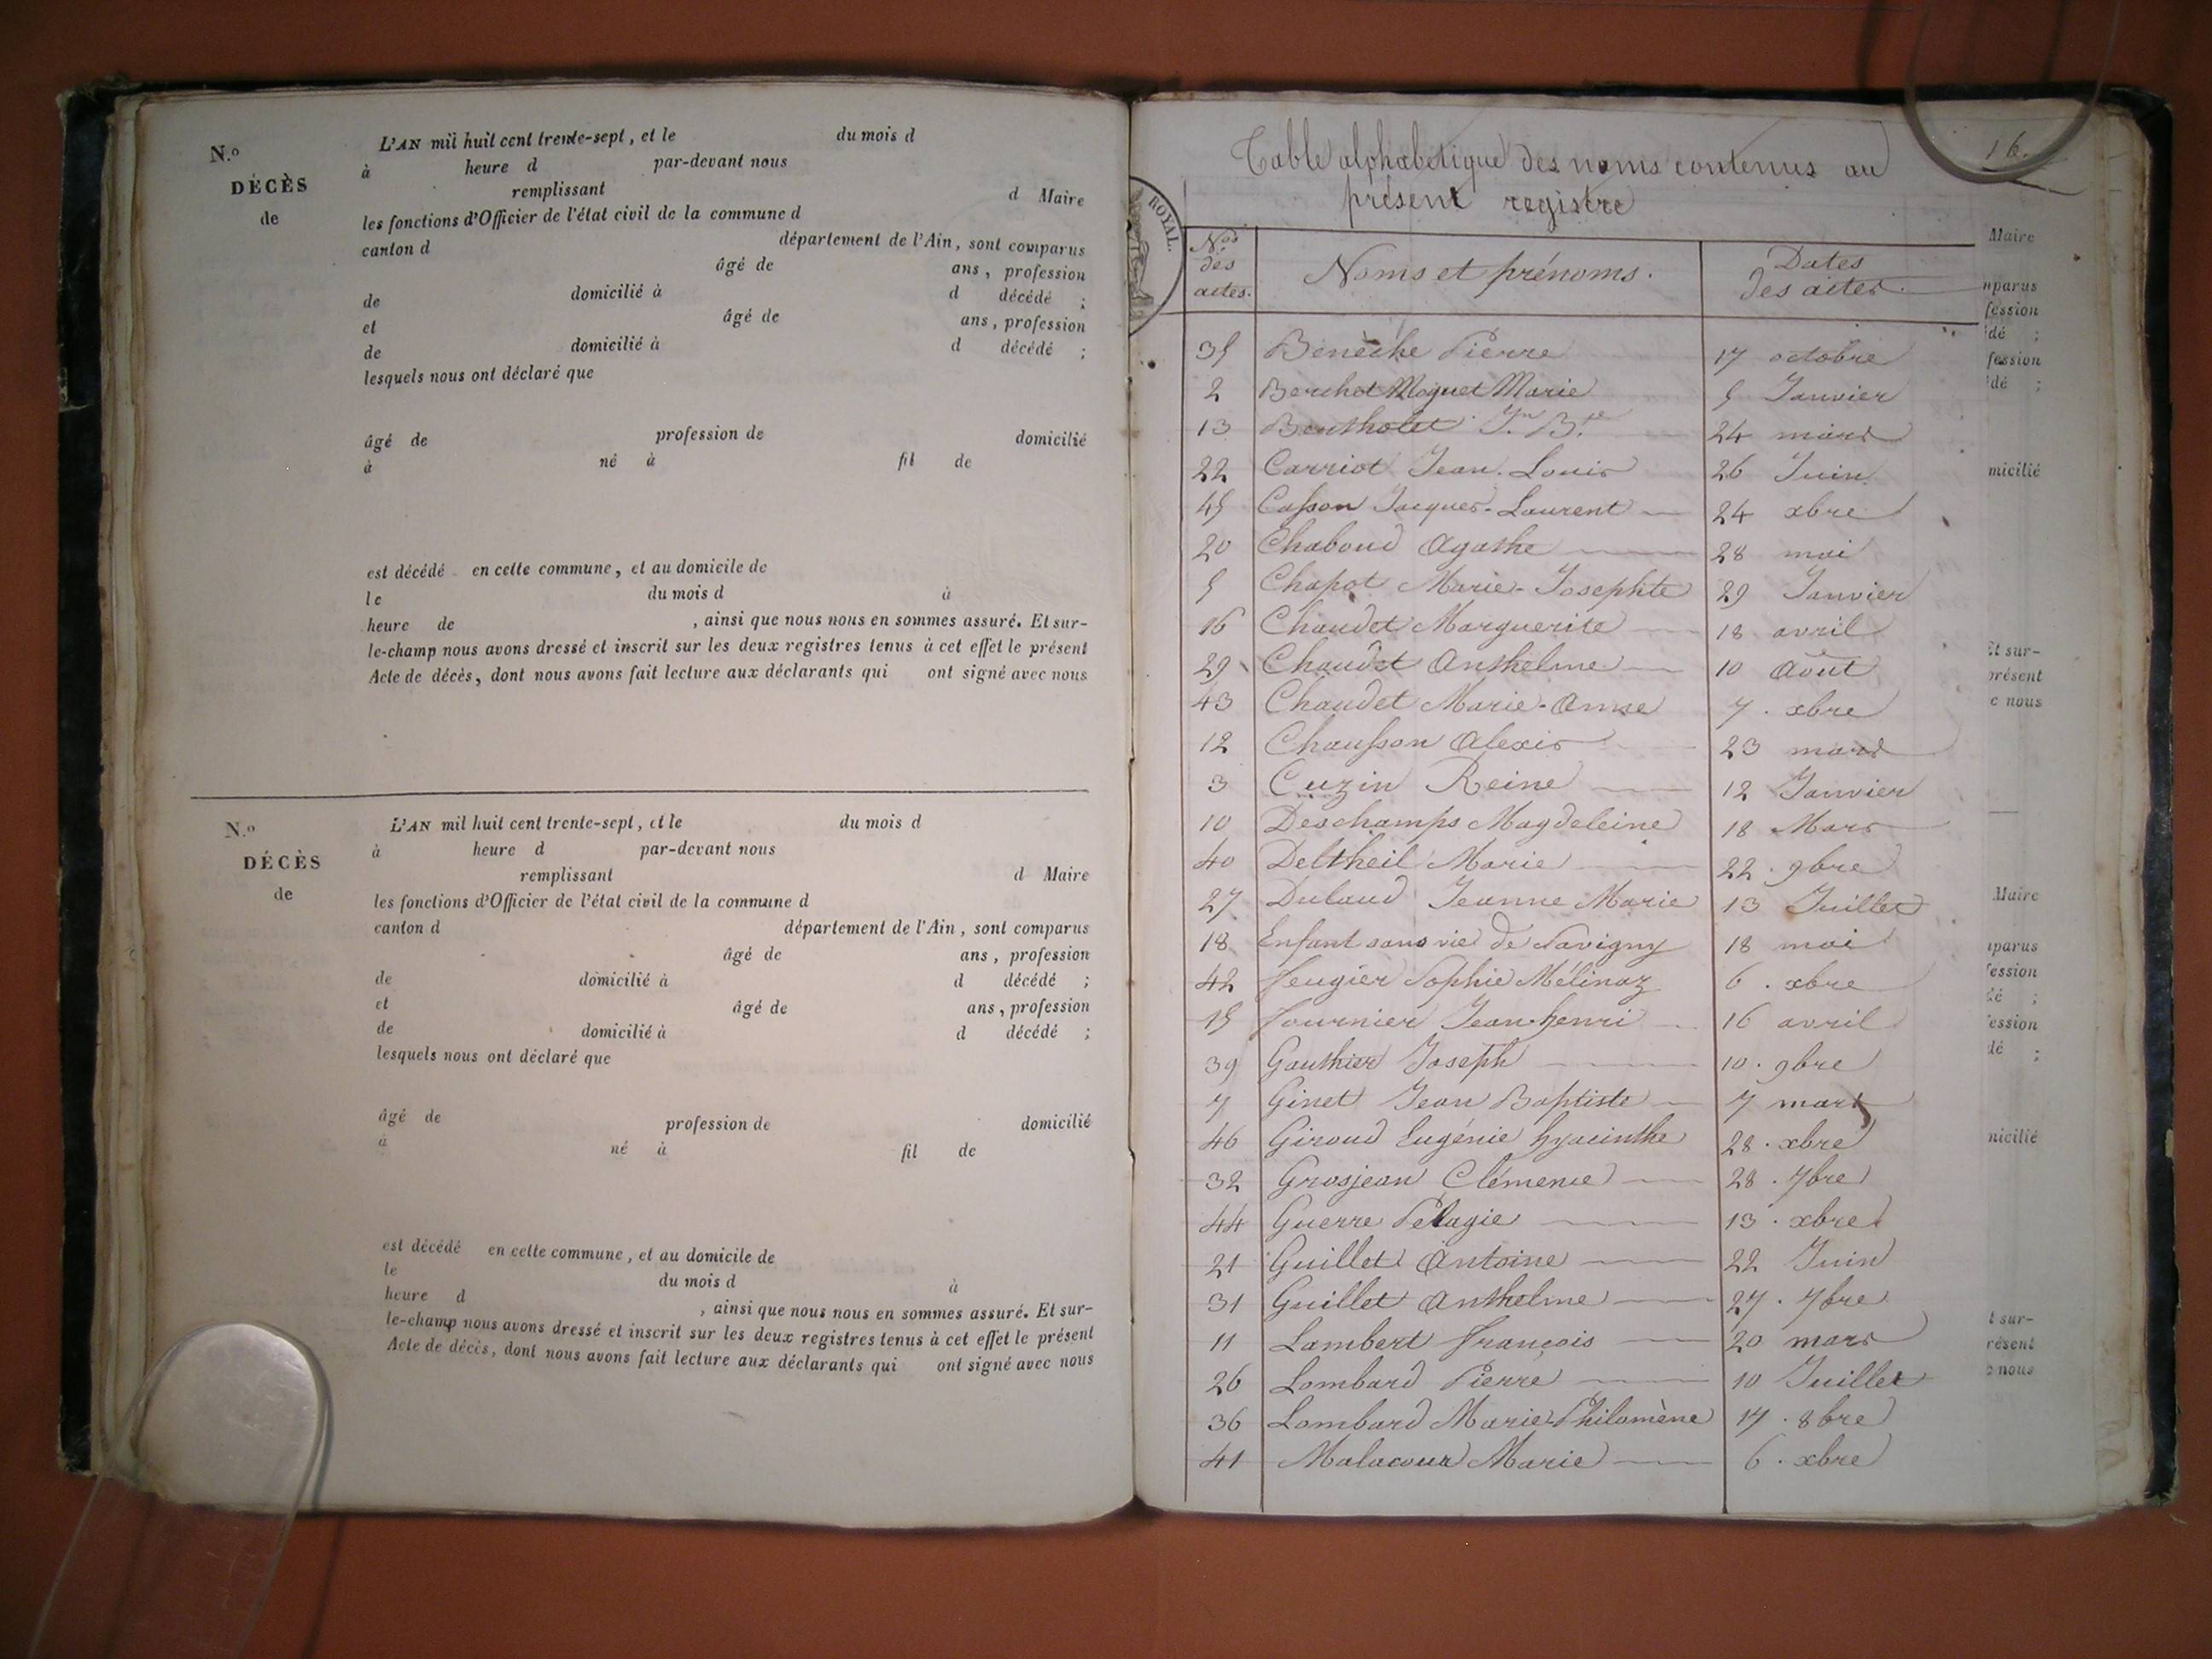 N.º
DÉCÈS
de
L'AN mil huit cent trente-sept, et le du mois d
à heure d par-devant nous
remplissant d Maire
les fonctions d'Officier de l'état civil de la commune d
canton d département de l'Ain, sont comparus
âgé de ans, profession
de domicilié à d décédé ;
et âgé de ans, profession
de domicilié à d décédé ;
lesquels nous ont déclaré que
âgé de profession de domicilié
à né à fil de
est décédé en cette commune, et au domicile de
le du mois d à
heure de , ainsi que nous nous en sommes assuré. Et sur-
le-champ nous avons dressé et inscrit sur les deux registres tenus à cet effet le présent
Acte de décès, dont nous avons fait lecture aux déclarants qui ont signé avec nous
N.º
DÉCÈS
de
L'AN mil huit cent trente-sept, et le du mois d
à heure d par-devant nous
remplissant d Maire
les fonctions d'Officier de l'état civil de la commune d
canton d département de l'Ain, sont comparus
âgé de ans, profession
de domicilié à d décédé ;
et âgé de ans, profession
de domicilié à d décédé ;
lesquels nous ont déclaré que
âgé de profession de domicilié
à né à fil de
est décédé en cette commune, et au domicile de
le du mois d à
heure d , ainsi que nous nous en sommes assuré. Et sur-
le-champ nous avons dressé et inscrit sur les deux registres tenus à cet effet le présent
Acte de décès, dont nous avons fait lecture aux déclarants qui ont signé avec nous
ROYAL.
16.
Table alphabetique des noms contenus au
présent registre
Nos des actes. Noms et prénoms. Dates des actes.
35 Benèche Pierre 17 octobre
2 Berchet Moguet Marie 5 Janvier
13 Bertholet Jn Bte 24 mars
22 Carriot Jean-Louis 26 Juin
45 Casson Jacques-Laurent 24 xbre
20 Chaboud Agathe 28 mai
5 Chapot Marie-Josephte 29 Janvier
16 Chaudet Marguerite 18 avril
29 Chaudet Anthelme 10 Août
43 Chaudet Marie-Anne 7. xbre
12 Chausson Alexis 23 mars
3 Cuzin Reine 12 Janvier
10 Deschamps Magdeleine 18 Mars
40 Deltheil Marie 22. 9bre
27 Dubaud Jeanne Marie 13 Juillet
18 Enfant sans vie de Savigny 18 mai
42 Feugier Sophie Mélinaz 6. xbre
15 Fournier Jean-henri 16 avril
39 Gauthier Joseph 10. 9bre
7 Ginet Jean Baptiste 7 mars
46 Giroud Eugénie hyacinthe 28. xbre
32 Grosjean Clémence 28. 7bre
44 Guerre Pelagie 13. xbre
21 Guillet Antoine 22 Juin
31 Guillet Anthelme 27. 7bre
11 Lambert François 20 mars
26 Lombard Pierre 10 Juillet
36 Lombard Marie Philomène 17. 8bre
41 Malacour Marie 6. xbre
Maire
nparus
fession
dé ;
fession
dé ;
micilié
Et sur-
présent
c nous
Maire
parus
ession
dé ;
ession
dé ;
nicilié
t sur-
résent
nous